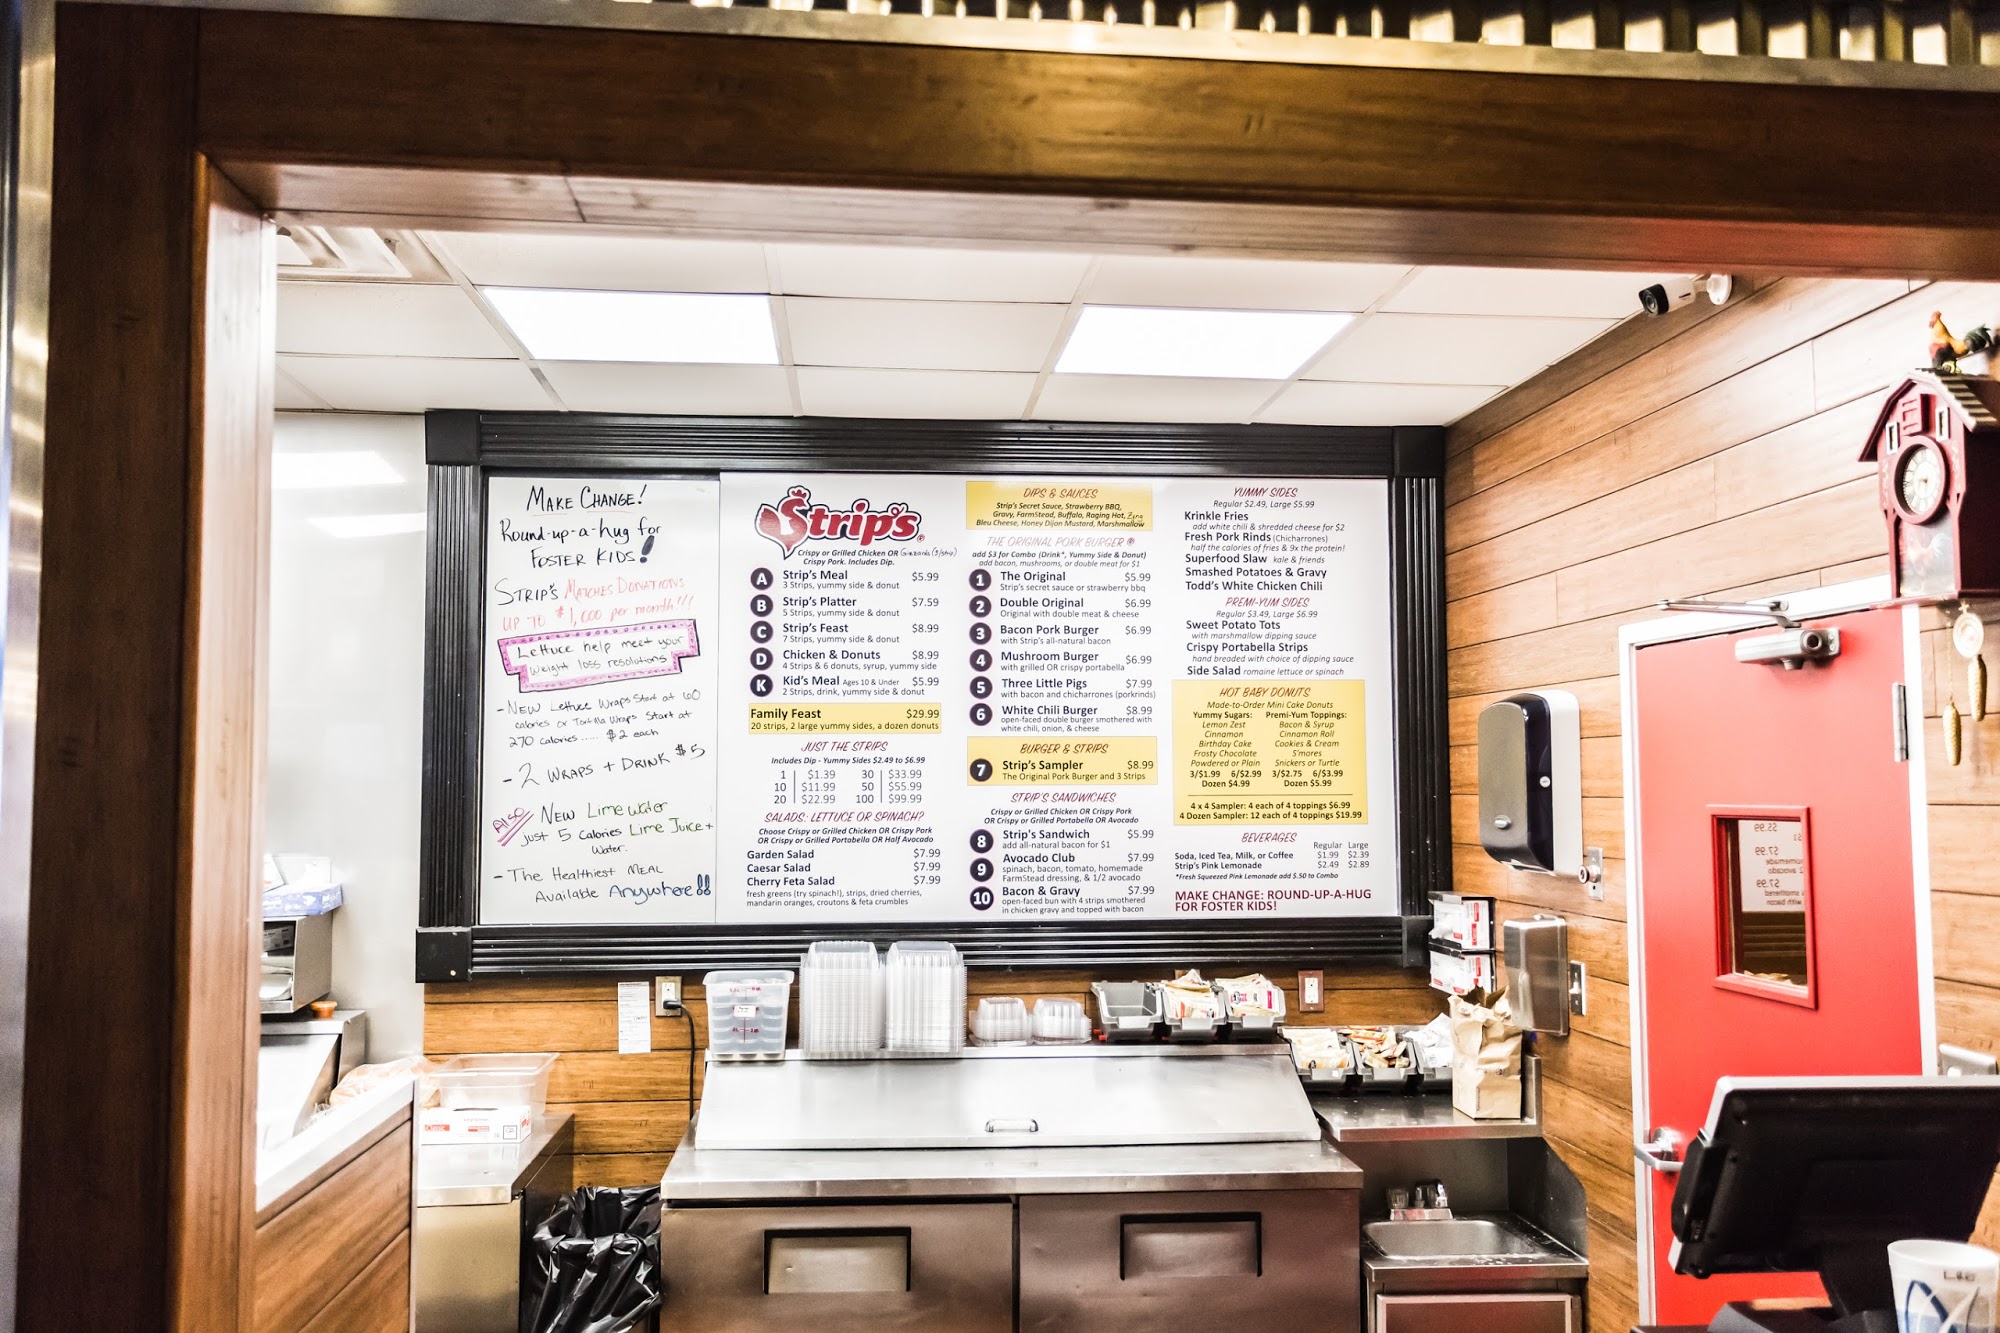 MAKE CHANGE!
Round-up-a-hug for
FOSTER KIDS!
STRIP'S MATCHES DONATIONS
UP TO $1,000 per month!!!
Lettuce help meet your
weight loss resolutions
- NEW Lettuce Wraps Start at 60
calories or Tortilla Wraps Start at
270 calories ..... $2 each
- 2 WRAPS + DRINK $5
Also NEW Lime water
just 5 Calories Lime Juice +
Water.
- The Healthiest MEAL
Available Anywhere!!
Strip's
Crispy or Grilled Chicken OR Gizzards (3/strip)
Crispy Pork. Includes Dip.
A Strip's Meal $5.99
3 Strips, yummy side & donut
B Strip's Platter $7.59
5 Strips, yummy side & donut
C Strip's Feast $8.99
7 Strips, yummy side & donut
D Chicken & Donuts $8.99
4 Strips & 6 donuts, syrup, yummy side
K Kid's Meal Ages 10 & Under $5.99
2 Strips, drink, yummy side & donut
Family Feast $29.99
20 strips, 2 large yummy sides, a dozen donuts
JUST THE STRIPS
Includes Dip - Yummy Sides $2.49 to $6.99
1 $1.39 30 $33.99
10 $11.99 50 $55.99
20 $22.99 100 $99.99
SALADS: LETTUCE OR SPINACH?
Choose Crispy or Grilled Chicken OR Crispy Pork
OR Crispy or Grilled Portabella OR Half Avocado
Garden Salad $7.99
Caesar Salad $7.99
Cherry Feta Salad $7.99
fresh greens (try spinach!), strips, dried cherries,
mandarin oranges, croutons & feta crumbles
DIPS & SAUCES
Strip's Secret Sauce, Strawberry BBQ,
Gravy, FarmStead, Buffalo, Raging Hot, Zing
Bleu Cheese, Honey Dijon Mustard, Marshmallow
THE ORIGINAL PORK BURGER ®
add $3 for Combo (Drink*, Yummy Side & Donut)
add bacon, mushrooms, or double meat for $1
1 The Original $5.99
Strip's secret sauce or strawberry bbq
2 Double Original $6.99
Original with double meat & cheese
3 Bacon Pork Burger $6.99
with Strip's all-natural bacon
4 Mushroom Burger $6.99
with grilled OR crispy portabella
5 Three Little Pigs $7.99
with bacon and chicharrones (porkrinds)
6 White Chili Burger $8.99
open-faced double burger smothered with
white chili, onion, & cheese
BURGER & STRIPS
7 Strip's Sampler $8.99
The Original Pork Burger and 3 Strips
STRIP'S SANDWICHES
Crispy or Grilled Chicken OR Crispy Pork
OR Crispy or Grilled Portobella OR Avocado
8 Strip's Sandwich $5.99
add all-natural bacon for $1
9 Avocado Club $7.99
spinach, bacon, tomato, homemade
FarmStead dressing, & 1/2 avocado
10 Bacon & Gravy $7.99
open-faced bun with 4 strips smothered
in chicken gravy and topped with bacon
YUMMY SIDES
Regular $2.49, Large $5.99
Krinkle Fries
add white chili & shredded cheese for $2
Fresh Pork Rinds (Chicharrones)
half the calories of fries & 9x the protein!
Superfood Slaw kale & friends
Smashed Potatoes & Gravy
Todd's White Chicken Chili
PREMI-YUM SIDES
Regular $3.49, Large $6.99
Sweet Potato Tots
with marshmallow dipping sauce
Crispy Portabella Strips
hand breaded with choice of dipping sauce
Side Salad romaine lettuce or spinach
HOT BABY DONUTS
Made-to-Order Mini Cake Donuts
Yummy Sugars: Premi-Yum Toppings:
Lemon Zest Bacon & Syrup
Cinnamon Cinnamon Roll
Birthday Cake Cookies & Cream
Frosty Chocolate S'mores
Powdered or Plain Snickers or Turtle
3/$1.99 6/$2.99 3/$2.75 6/$3.99
Dozen $4.99 Dozen $5.99
4 x 4 Sampler: 4 each of 4 toppings $6.99
4 Dozen Sampler: 12 each of 4 toppings $19.99
BEVERAGES
Regular Large
Soda, Iced Tea, Milk, or Coffee $1.99 $2.39
Strip's Pink Lemonade $2.49 $2.89
*Fresh Squeezed Pink Lemonade add $.50 to Combo
MAKE CHANGE: ROUND-UP-A-HUG
FOR FOSTER KIDS!